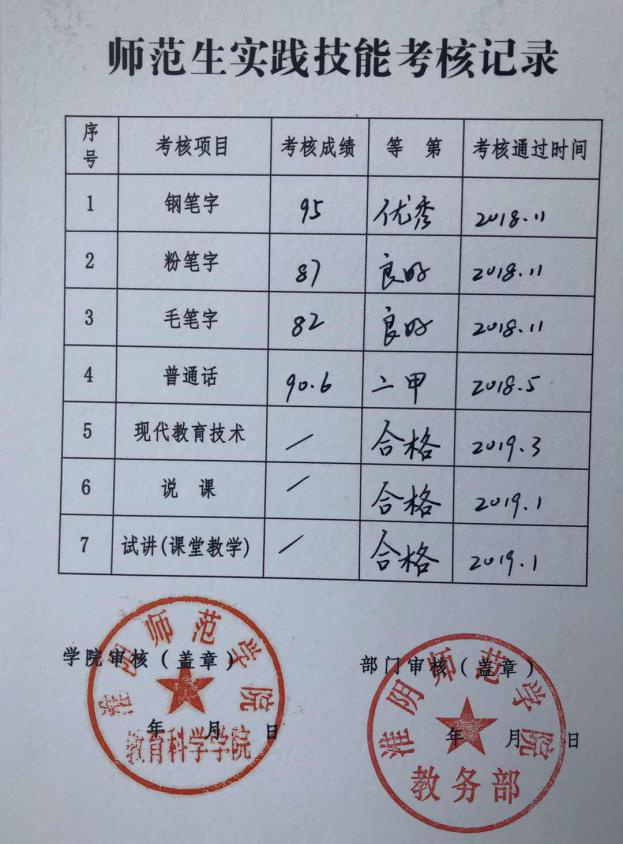 师范生实践技能考核记录
序号 考核项目 考核成绩 等 第 考核通过时间
1 钢笔字 95 优秀 2018.11
2 粉笔字 87 良好 2018.11
3 毛笔字 82 良好 2018.11
4 普通话 90.6 二甲 2018.5
5 现代教育技术 / 合格 2019.3
6 说 课 / 合格 2019.1
7 试讲(课堂教学) / 合格 2019.1
学院审核(盖章) 部门审核(盖章)
年 月 日 年 月 日
淮阴师范学院
教育科学学院
淮阴师范学院
教务部